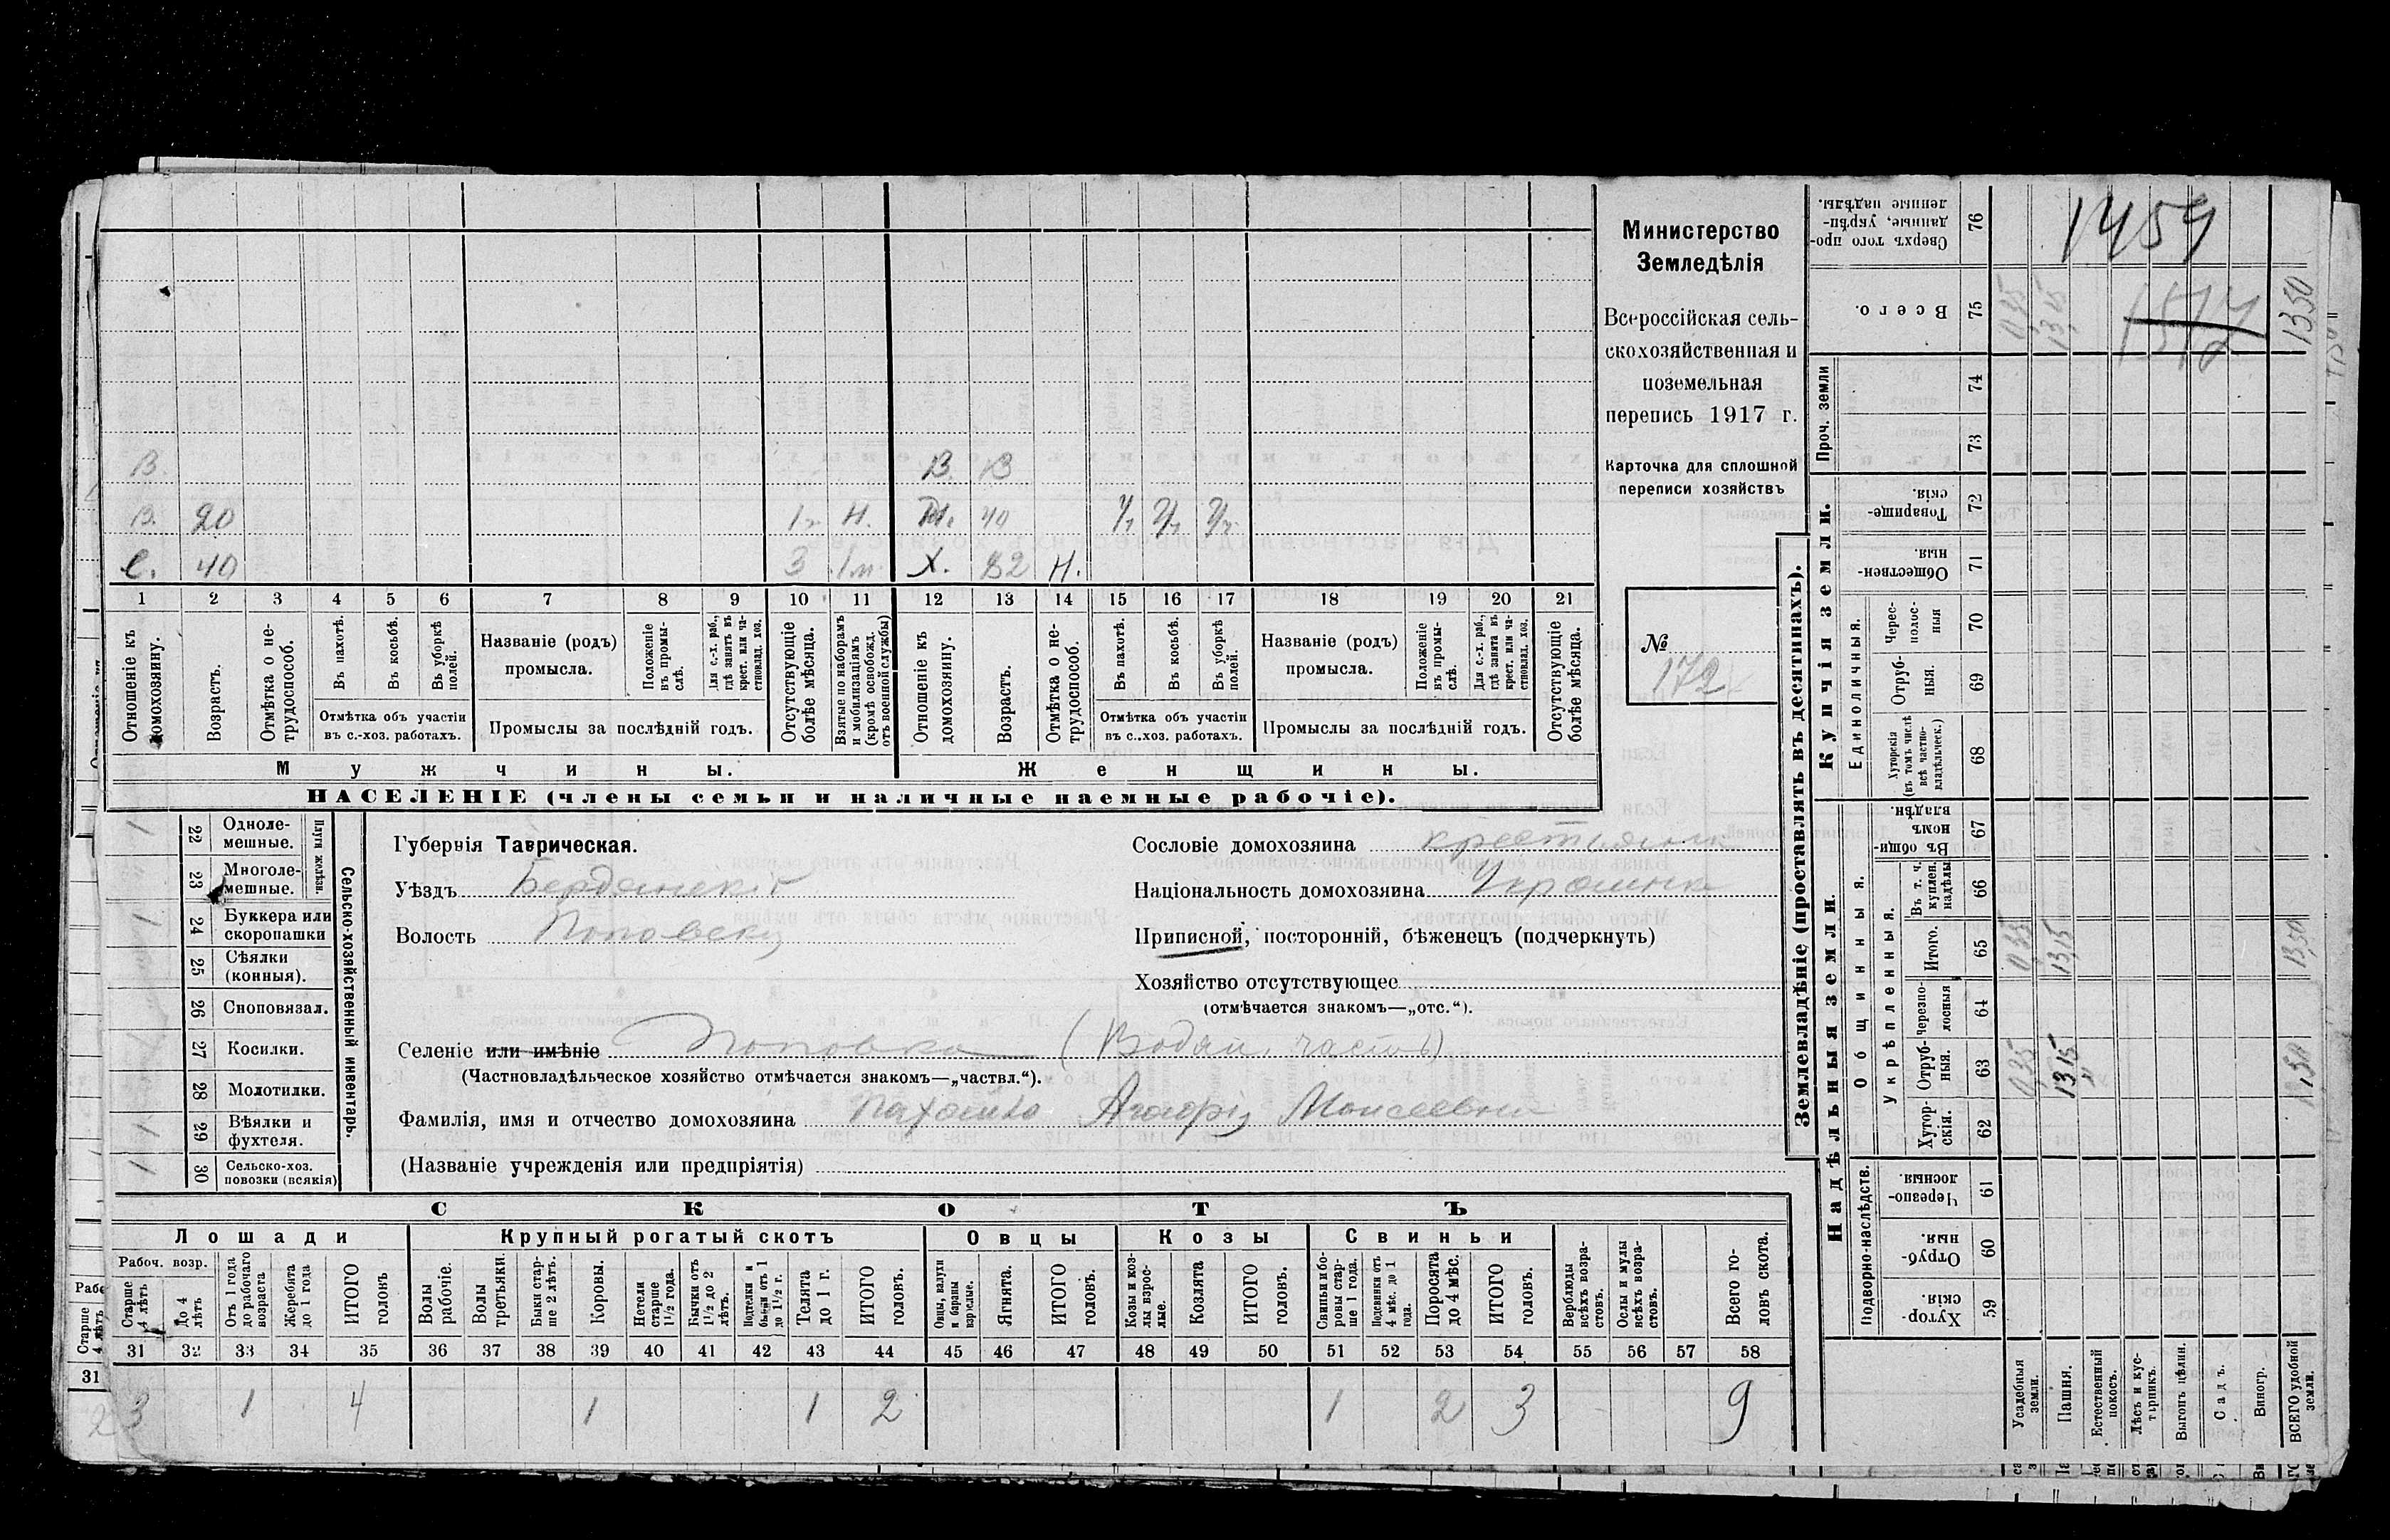 В. В. В
В. 20 1 Н. М. 40
С. 40 3 1 Х. 82 Н.
1 2 3 4 5 6 7 8 9 10 11 12 13 14 15 16 17 18 19 20 21
Отношеніе къ домохозяину.
Возрастъ.
Отмѣтка о не-
трудоспособ.
Въ пахотѣ.
Въ косьбѣ.
Въ уборкѣ
полей.
Отмѣтка объ участіи
въ с.-хоз. работахъ.
Названіе (родъ)
промысла.
Положеніе
въ промы-
слѣ.
Для с.-х. раб.,
гдѣ занятъ въ
крест. или ча-
стновлад. хоз.
Промыслы за послѣдній годъ.
Отсутствующіе
болѣе мѣсяца.
Взятые по наборамъ
и мобилизаціямъ
(кромѣ освобожд.
отъ военной службы)
Отношеніе къ
домохозяину.
Возрастъ.
Отмѣтка о не-
трудоспособ.
Въ пахотѣ.
Въ косьбѣ.
Въ уборкѣ
полей.
Отмѣтка объ участіи
въ с.-хоз. работахъ.
Названіе (родъ)
промысла.
Положеніе
въ промы-
слѣ.
Для с.-х. раб.,
гдѣ занята въ
крест. или ча-
стновлад. хоз.
Промыслы за послѣдній годъ.
Отсутствующіе
болѣе мѣсяца.
Мужчины.
Женщины.
НАСЕЛЕНІЕ (члены семьи и наличные наемные рабочіе).
Министерство
Земледѣлія
Всероссійская сель-
скохозяйственная и
поземельная
перепись 1917 г.
Карточка для сплошной
переписи хозяйствъ
№
172
22 Одноле-
мешные.
23 Многоле-
мешные.
Плуги желѣзн.
24 Буккера или
скоропашки
25 Сѣялки
(конныя).
26 Сноповязал.
27 Косилки.
28 Молотилки.
29 Вѣялки и
фухтеля.
30 Сельско-хоз.
повозки (всякія)
Сельско-хозяйственный инвентарь.
Губернія Таврическая.
Уѣздъ Бердянскій
Волость Поповск
Сословіе домохозяина крестьянинъ
Національность домохозяина Украинк
Приписной, посторонній, бѣженецъ (подчеркнуть)
Хозяйство отсутствующее
(отмѣчается знакомъ—„отс.“).
Селеніе или имѣніе Поповка (Водян. часть)
(Частновладѣльческое хозяйство отмѣчается знакомъ—„частвл.“).
Фамилія, имя и отчество домохозяина Моисеевн
(Названіе учрежденія или предпріятія)
СКОТЪ
Лошади
Крупный рогатый скотъ
Овцы
Козы
Свиньи
Рабоч. возр.
Старше
4 лѣтъ
До 4
лѣтъ
Отъ 1 года
до рабочаго
возраста
Жеребята
до 1 года
ИТОГО
головъ
Волы
рабочіе.
Волы
третьяки.
Быки стар-
ше 2 лѣтъ.
Коровы.
Нетели
старше
1½ года.
Бычки отъ
1½ до 2
лѣтъ.
Подтелки и
бычки отъ 1
до 1½ г.
Телята
до 1 г.
ИТОГО
головъ.
Овцы, валухи
и бараны
взрослые.
Ягнята.
ИТОГО
головъ.
Козы и коз-
лы взрос-
лые.
Козлята
ИТОГО
головъ.
Свиньи и бо-
ровы стар-
ше 1 года.
Подсвинки отъ
4 мѣс. до 1
года.
Поросята
до 4 мѣс.
ИТОГО
головъ.
Верблюды
всѣхъ возра-
стовъ.
Ослы и мулы
всѣхъ возра-
стовъ.
Всего го-
ловъ скота.
31 32 33 34 35 36 37 38 39 40 41 42 43 44 45 46 47 48 49 50 51 52 53 54 55 56 57 58
3 1 4 1 1 2 1 2 3 9
Землевладѣніе (проставлять въ десятинахъ).
Купчія земли.
Надѣльныя земли.
Сверхъ того про-
данные, укрѣп-
ленные надѣлы.
76
1459
Всего.
75
0,35
13,15
1350
Проч. земли
74
73
Товарище-
скія.
72
Обществен-
ныя
71
Единоличныя.
Черес-
полос-
ныя
70
Отруб-
ныя.
69
Хуторскія
(въ томъ числѣ
всѣ частно-
владѣльческ.)
68
Общинныя.
Въ общи-
номъ
владѣн.
67
Укрѣпленныя.
Въ т. ч.
куплен.
надѣлы
66
Итого.
65
0,35
13,15
13,50
Черезпо-
лосныя
64
Отруб-
ныя.
63
0,35
13,15
Хутор-
скія.
62
Подворно-наслѣдств.
Черезпо-
лосныя.
61
Отруб-
ныя.
60
Хутор-
скія.
59
Усадебныя
земли.
Пашня.
Естественный
покосъ.
Лѣсъ и кус-
тарникъ.
Выгонъ цѣлин.
Садъ.
Виногр.
ВСЕГО удобной
земли.